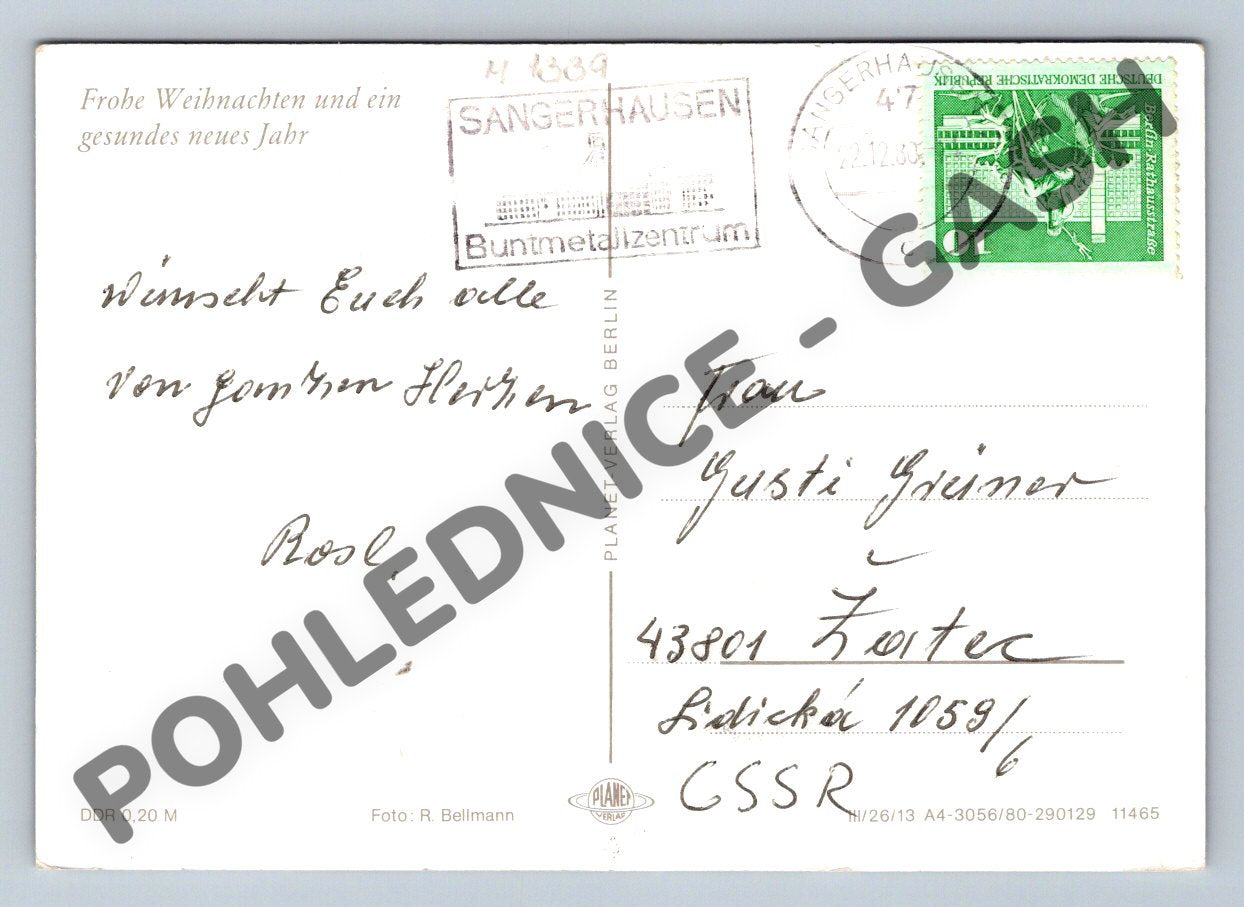 Frohe Weihnachten und ein
gesundes neues Jahr
M 1339
SANGERHAUSEN
Buntmetallzentrum
SANGERHAUSEN
47
22.12.80
c
DEUTSCHE DEMOKRATISCHE REPUBLIK
Berlin Rathausstraße
10
Wünscht Euch alle
von ganzen Herzen
Rosl.
PLANET-VERLAG BERLIN
Frau
Gusti Greiner
43801 Žatec
Lidická 1059/6
CSSR
DDR 0,20 M
Foto: R. Bellmann
PLANET
VERLAG
III/26/13 A4-3056/80-290129 11465
POHLEDNICE - GASH